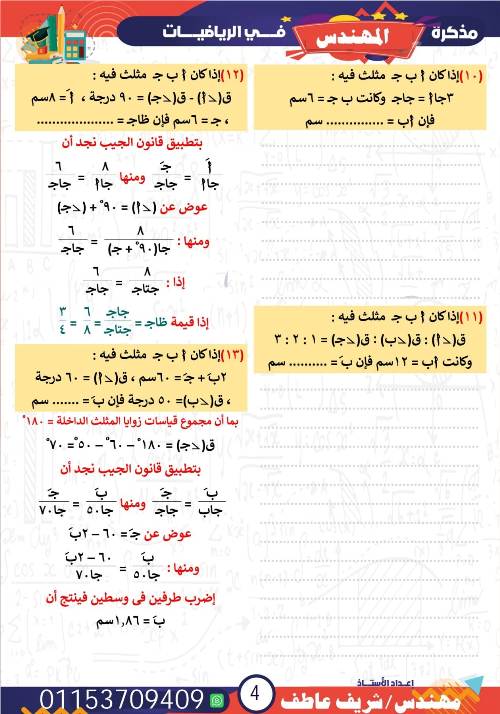 مذكرة المهندس فـي الرياضيـات
(١٠) إذا كان أ ب جـ مثلث فيه :
٣جاأ = جاجـ وكانت ب جـ = ٦سم
فإن أب = ............... سم
(١١) إذا كان أ ب جـ مثلث فيه :
ق(>أ) : ق(>ب) : ق(>جـ) = ١ : ٢ : ٣
وكانت أب = ١٢سم فإن بَ = .......... سم
(١٢) إذا كان أ ب جـ مثلث فيه :
ق(>أ) - ق(>جـ) = ٩٠ درجة ، أَ = ٨سم
، جـَ = ٦سم فإن ظاجـ = ....................
بتطبيق قانون الجيب نجد أن
أَ/جاأ = جـَ/جاجـ ومنها ٨/جاأ = ٦/جاجـ
عوض عن (>أ) = ٩٠° + (>جـ)
ومنها : ٨/جا(٩٠° + جـ) = ٦/جاجـ
إذا : ٨/جتاجـ = ٦/جاجـ
إذا قيمة ظاجـ = جاجـ/جتاجـ = ٦/٨ = ٣/٤
(١٣) إذا كان أ ب جـ مثلث فيه :
٢بَ + جـَ = ٦٠سم ، ق(>أ) = ٦٠ درجة
، ق(>ب) = ٥٠ درجة فإن بَ = ....... سم
بما أن مجموع قياسات زوايا المثلث الداخلة = ١٨٠°
ق(>جـ) = ١٨٠° – ٦٠° – ٥٠° = ٧٠°
بتطبيق قانون الجيب نجد أن
بَ/جاب = جـَ/جاجـ ومنها بَ/جا٥٠ = جـَ/جا٧٠
عوض عن جـَ = ٦٠ – ٢بَ
ومنها : بَ/جا٥٠ = ٦٠ – ٢بَ/جا٧٠
إضرب طرفين فى وسطين فينتج أن
بَ = ١,٨٦سم
إعداد الأستاذ
مهندس/ شريف عاطف
4
01153709409